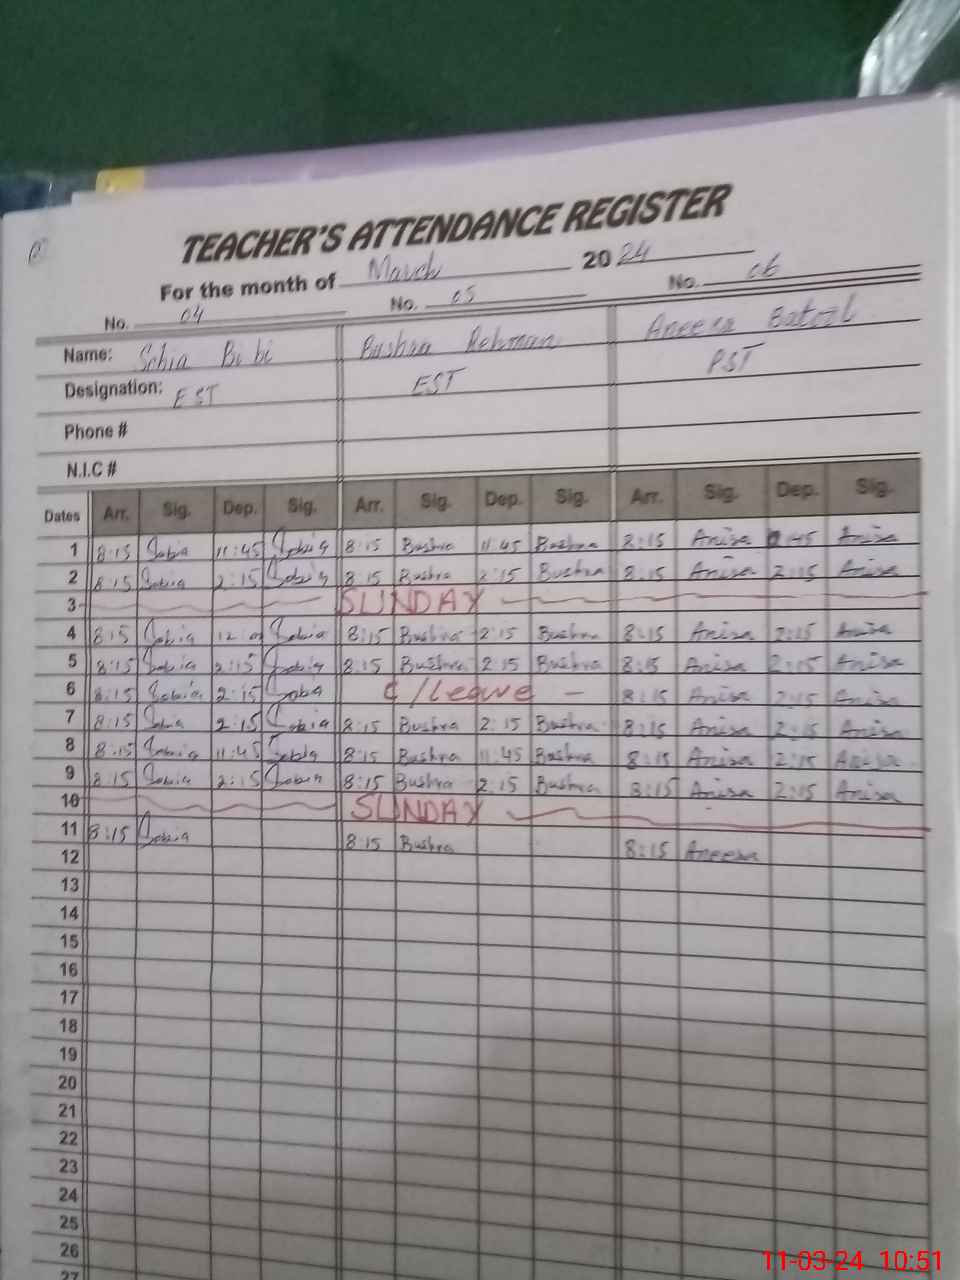 TEACHER'S ATTENDANCE REGISTER
For the month of March 2024
No. 04 No. 05 No. 06
Name: Sobia Bibi Bushra Rehman Aneesa Batool
Designation: EST EST PST
Phone #
N.I.C #
Dates Arr. Sig. Dep. Sig. Arr. Sig. Dep. Sig. Arr. Sig. Dep. Sig.
1 8:15 Sobia 11:45 Sobia 8:15 Bushra 11:45 Bushra 8:15 Anisa :45 Anisa
2 8:15 Sobia 2:15 Sobia 8:15 Bushra 2:15 Bushra 8:15 Anisa 2:15 Anisa
3 SUNDAY
4 8:15 Sobia 12: Sobia 8:15 Bushra 2:15 Bushra 8:15 Anisa 2:15 Anisa
5 8:15 Sobia 2:15 Sobia 8:15 Bushra 2:15 Bushra 8:15 Anisa 2:15 Anisa
6 8:15 Sobia 2:15 Soba C/Leave - 8:15 Anisa 2:15 Anisa
7 8:15 Sobia 2:15 Sobia 8:15 Bushra 2:15 Bushra 8:15 Anisa 2:15 Anisa
8 8:15 Sobia 11:45 Sobia 8:15 Bushra 11:45 Bushra 8:15 Anisa 2:15 Anisa
9 8:15 Sobia 2:15 Sobia 8:15 Bushra 2:15 Bushra 8:15 Anisa 2:15 Anisa
10 SUNDAY
11 8:15 Sobia 8:15 Bushra 8:15 Aneesa
12
13
14
15
16
17
18
19
20
21
22
23
24
25
26
27
11-03-24 10:51